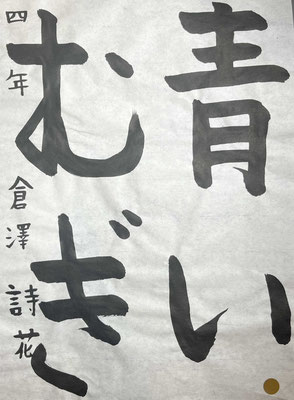 青い
むぎ
四年 倉澤 詩花